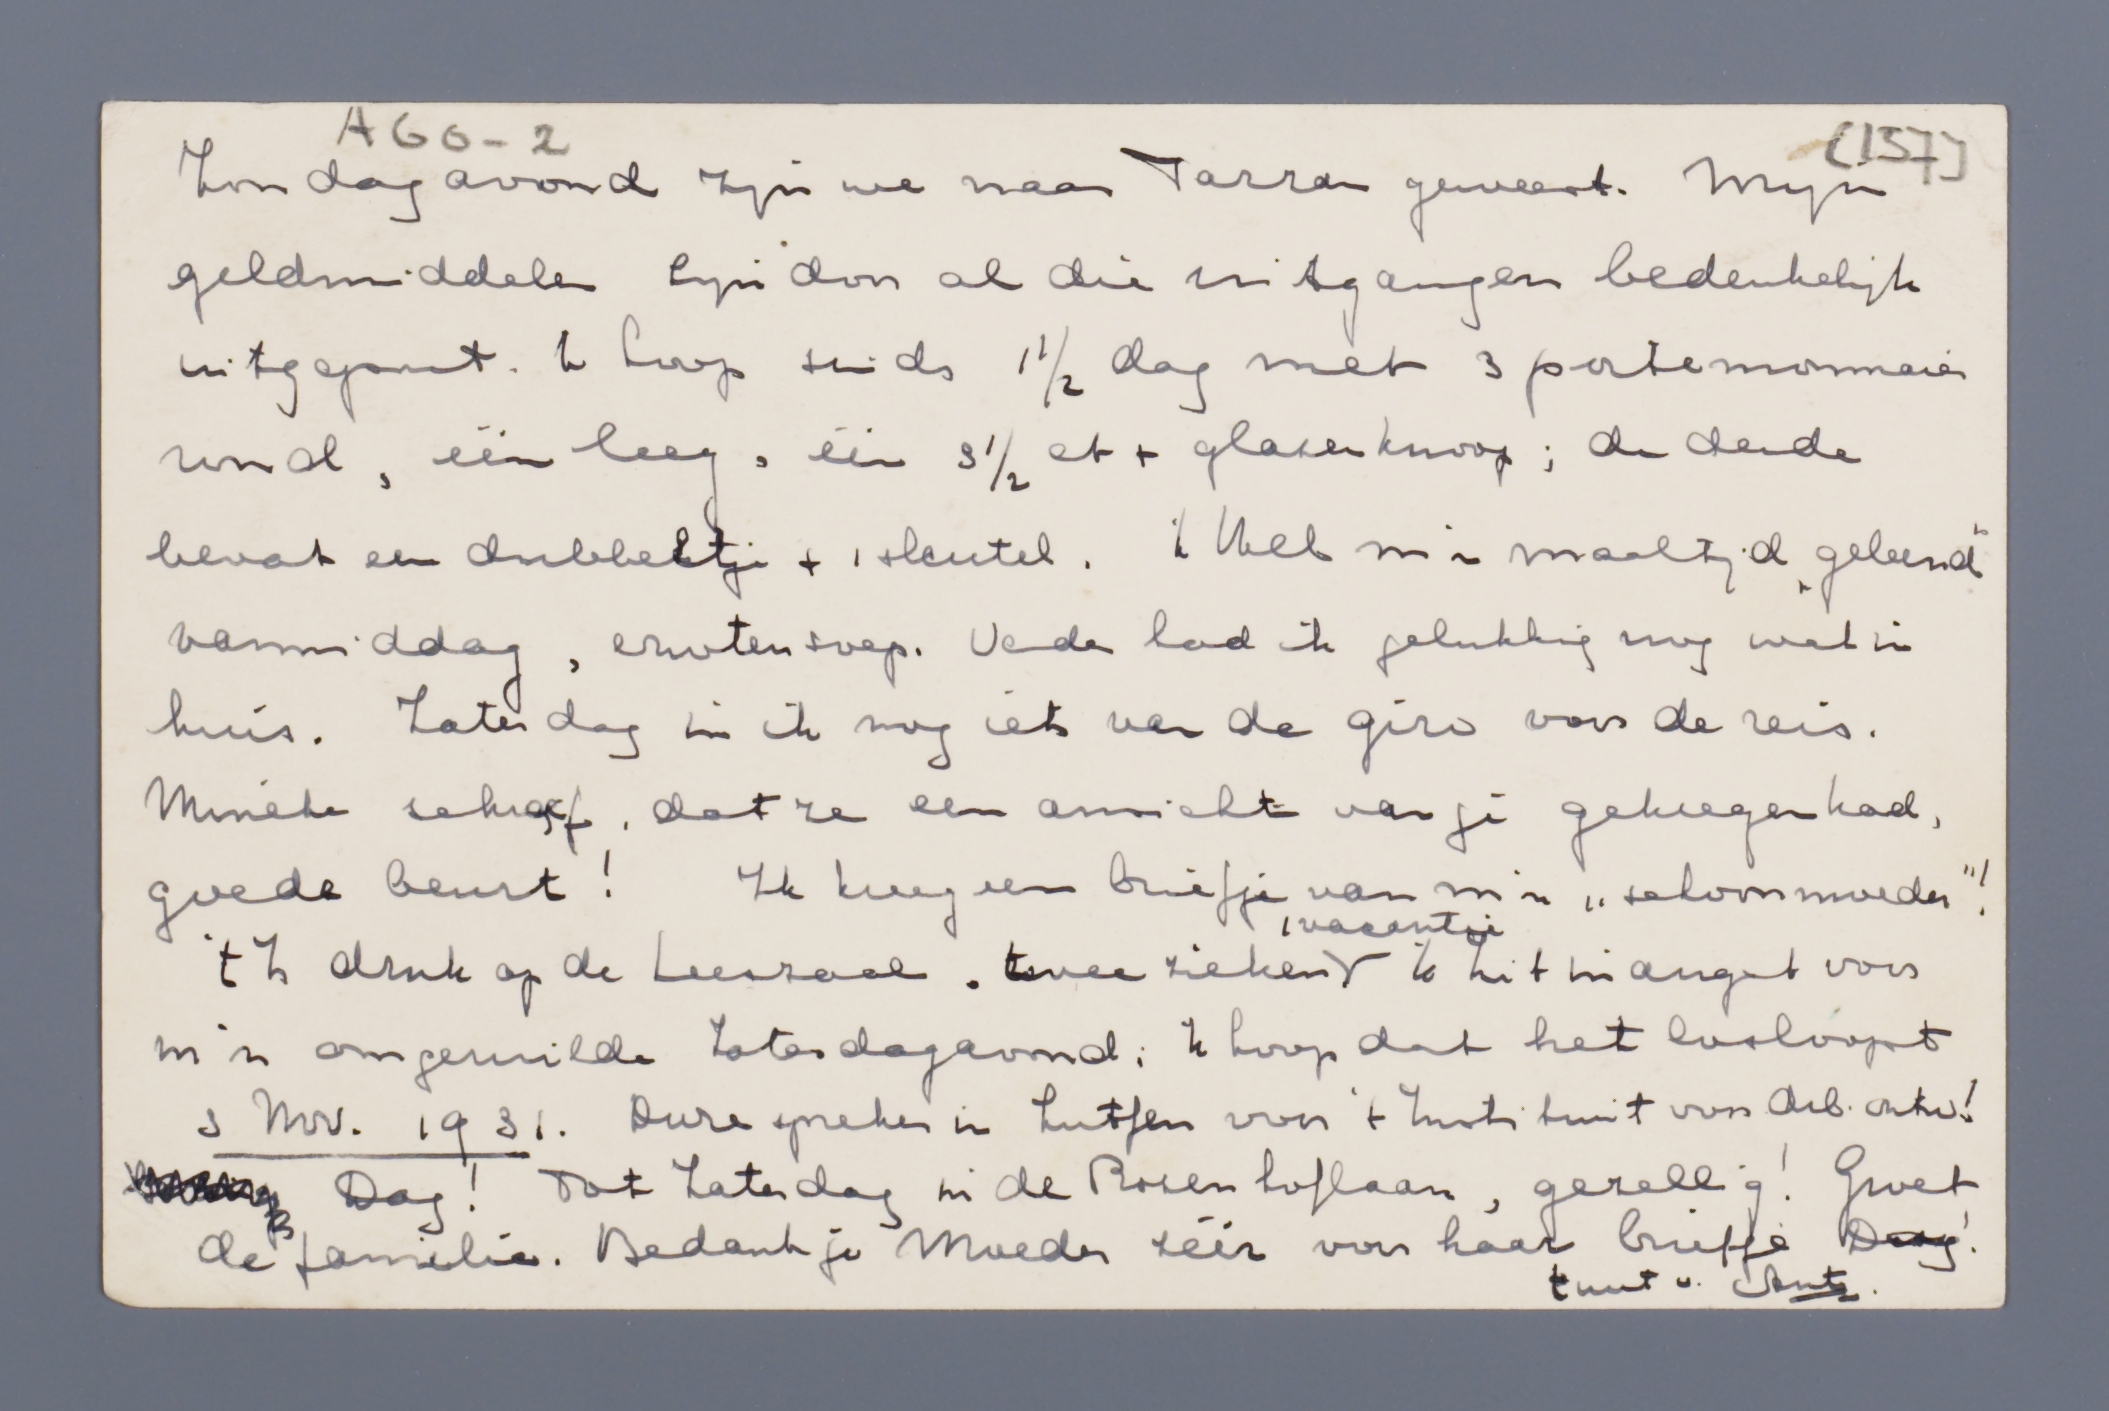 A60-2 (157)
Zondagavond zijn we naar Tarzan geweest. Mijn
geldmiddelen zijn door al die uitgangen bedenkelijk
uitgeput. Ik loop sinds 1 1/2 dag met 3 portemonnaies
rond, één leeg, één 3 1/2 ct + glazen knoop; de derde
bevat een dubbeltje + 1 sleutel. Ik heb m'n maaltijd „geleend"
vanmiddag, erwtensoep. Verder had ik gelukkig nog wat in
huis. Zaterdag in ik nog iets van de giro voor de reis.
Mineke schreef, dat ze een ansicht van je gekregen had,
goede beurt! Ik kreeg een briefje van m'n „schoonmoeder"!
't Is druk op de Leeszaal. twee zieken, 1 vacantie Ik zit in angst voor
m'n omgeruilde Zaterdagavond; Ik hoop dat het losloopt
3 Nov. 1931. Dure spreker in Zutfen voor 't Instituut voor Arb. ontw!
Dag! Tot Zaterdag in de Rosenhoflaan, gezellig! Groet
de familie. Bedank je Moeder zéér voor haar briefje Dag!
t.